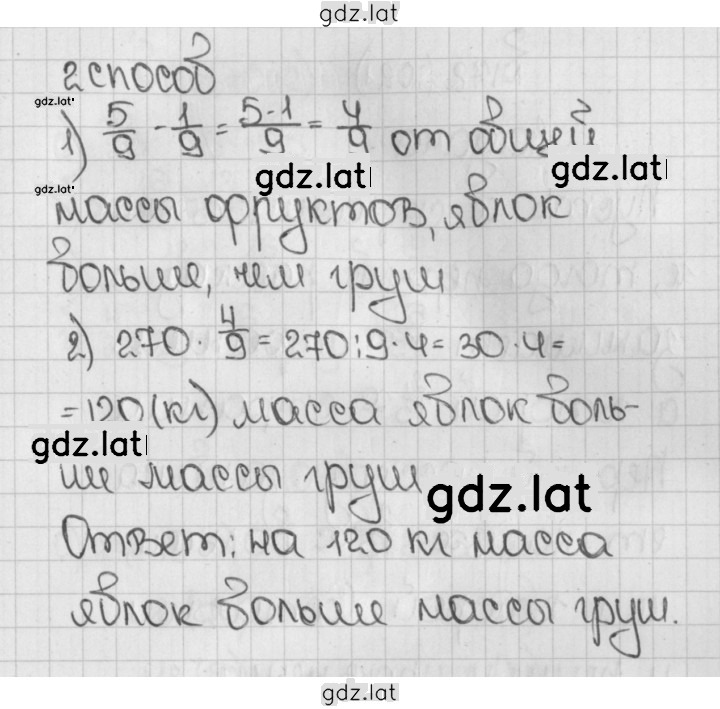 gdz.lat
2 способ
gdz.lat
1) 5/9 - 1/9 = 5-1/9 = 4/9 от общей
gdz.lat gdz.lat
gdz.lat
массы фруктов, яблок
больше, чем груш
2) 270 · 4/9 = 270 : 9 · 4 = 30 · 4 =
= 120 (кг) масса яблок боль-
gdz.lat
ше массы груш
gdz.lat
Ответ: на 120 кг масса
яблок больше массы груш.
gdz.lat